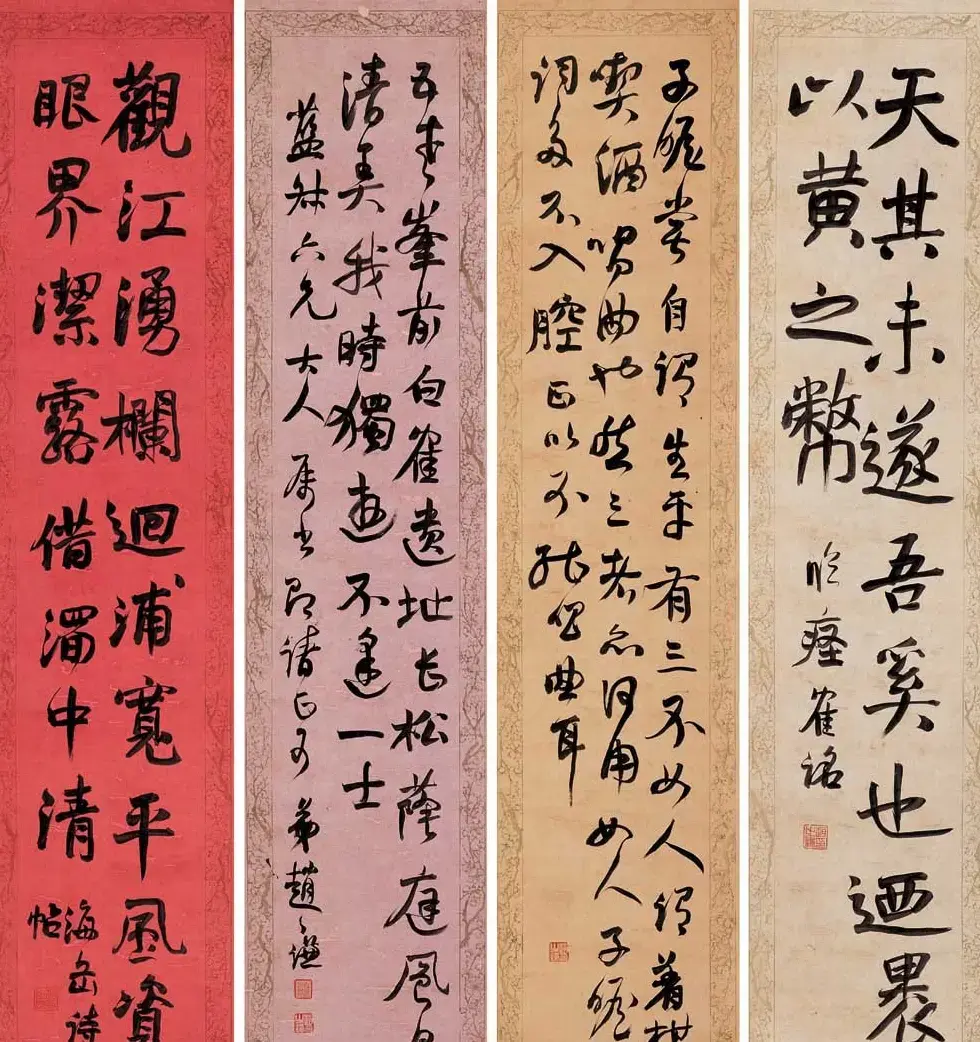 天其未遂吾奚也迺裹
以黄之幣
臨瘞雀銘
子瞻嘗自謂生平有三不如人謂著棋
喫酒唱曲也然三者亦何用如人子瞻
詞多不入腔正以不能唱曲耳
五老峯前白雀遺址長松蔭庭風日
清美我時獨遊不逢一士
藍叔六兄大人屬書即請正可 弟趙之謙
觀江湧欄迴浦寬平風資
眼界潔露借濁中清
海岳詩
帖